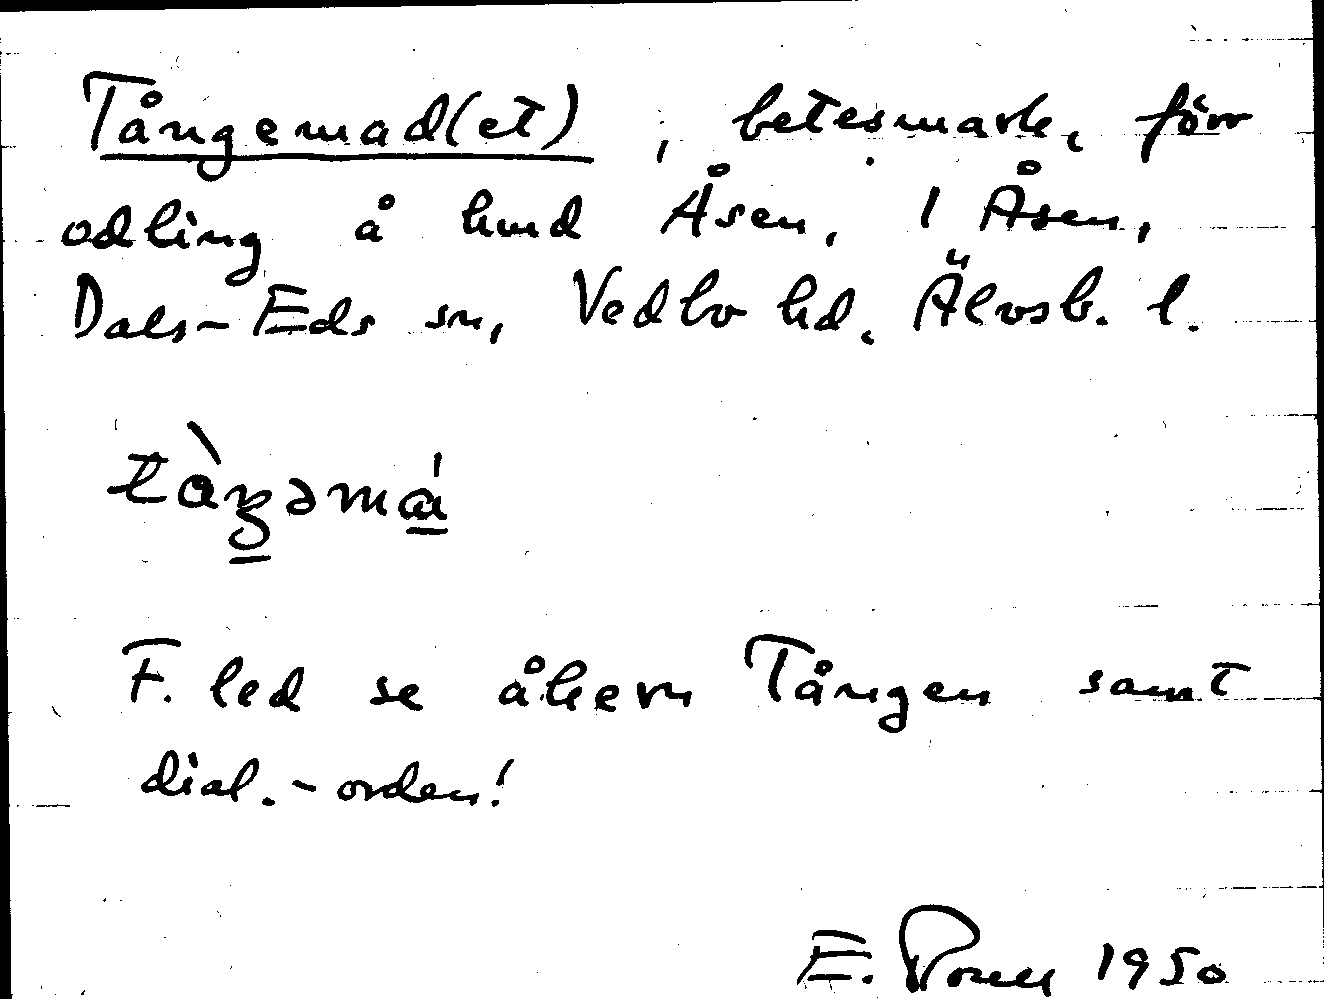 Tångemad(et), betesmark, förr
odling å hmd Åsen, 1 Åsen,
Dals-Eds sn, Vedbo hd. Älvsb. l.
tàŋəmá
F. led se åkern Tången samt
dial.-orden!
E. 1950